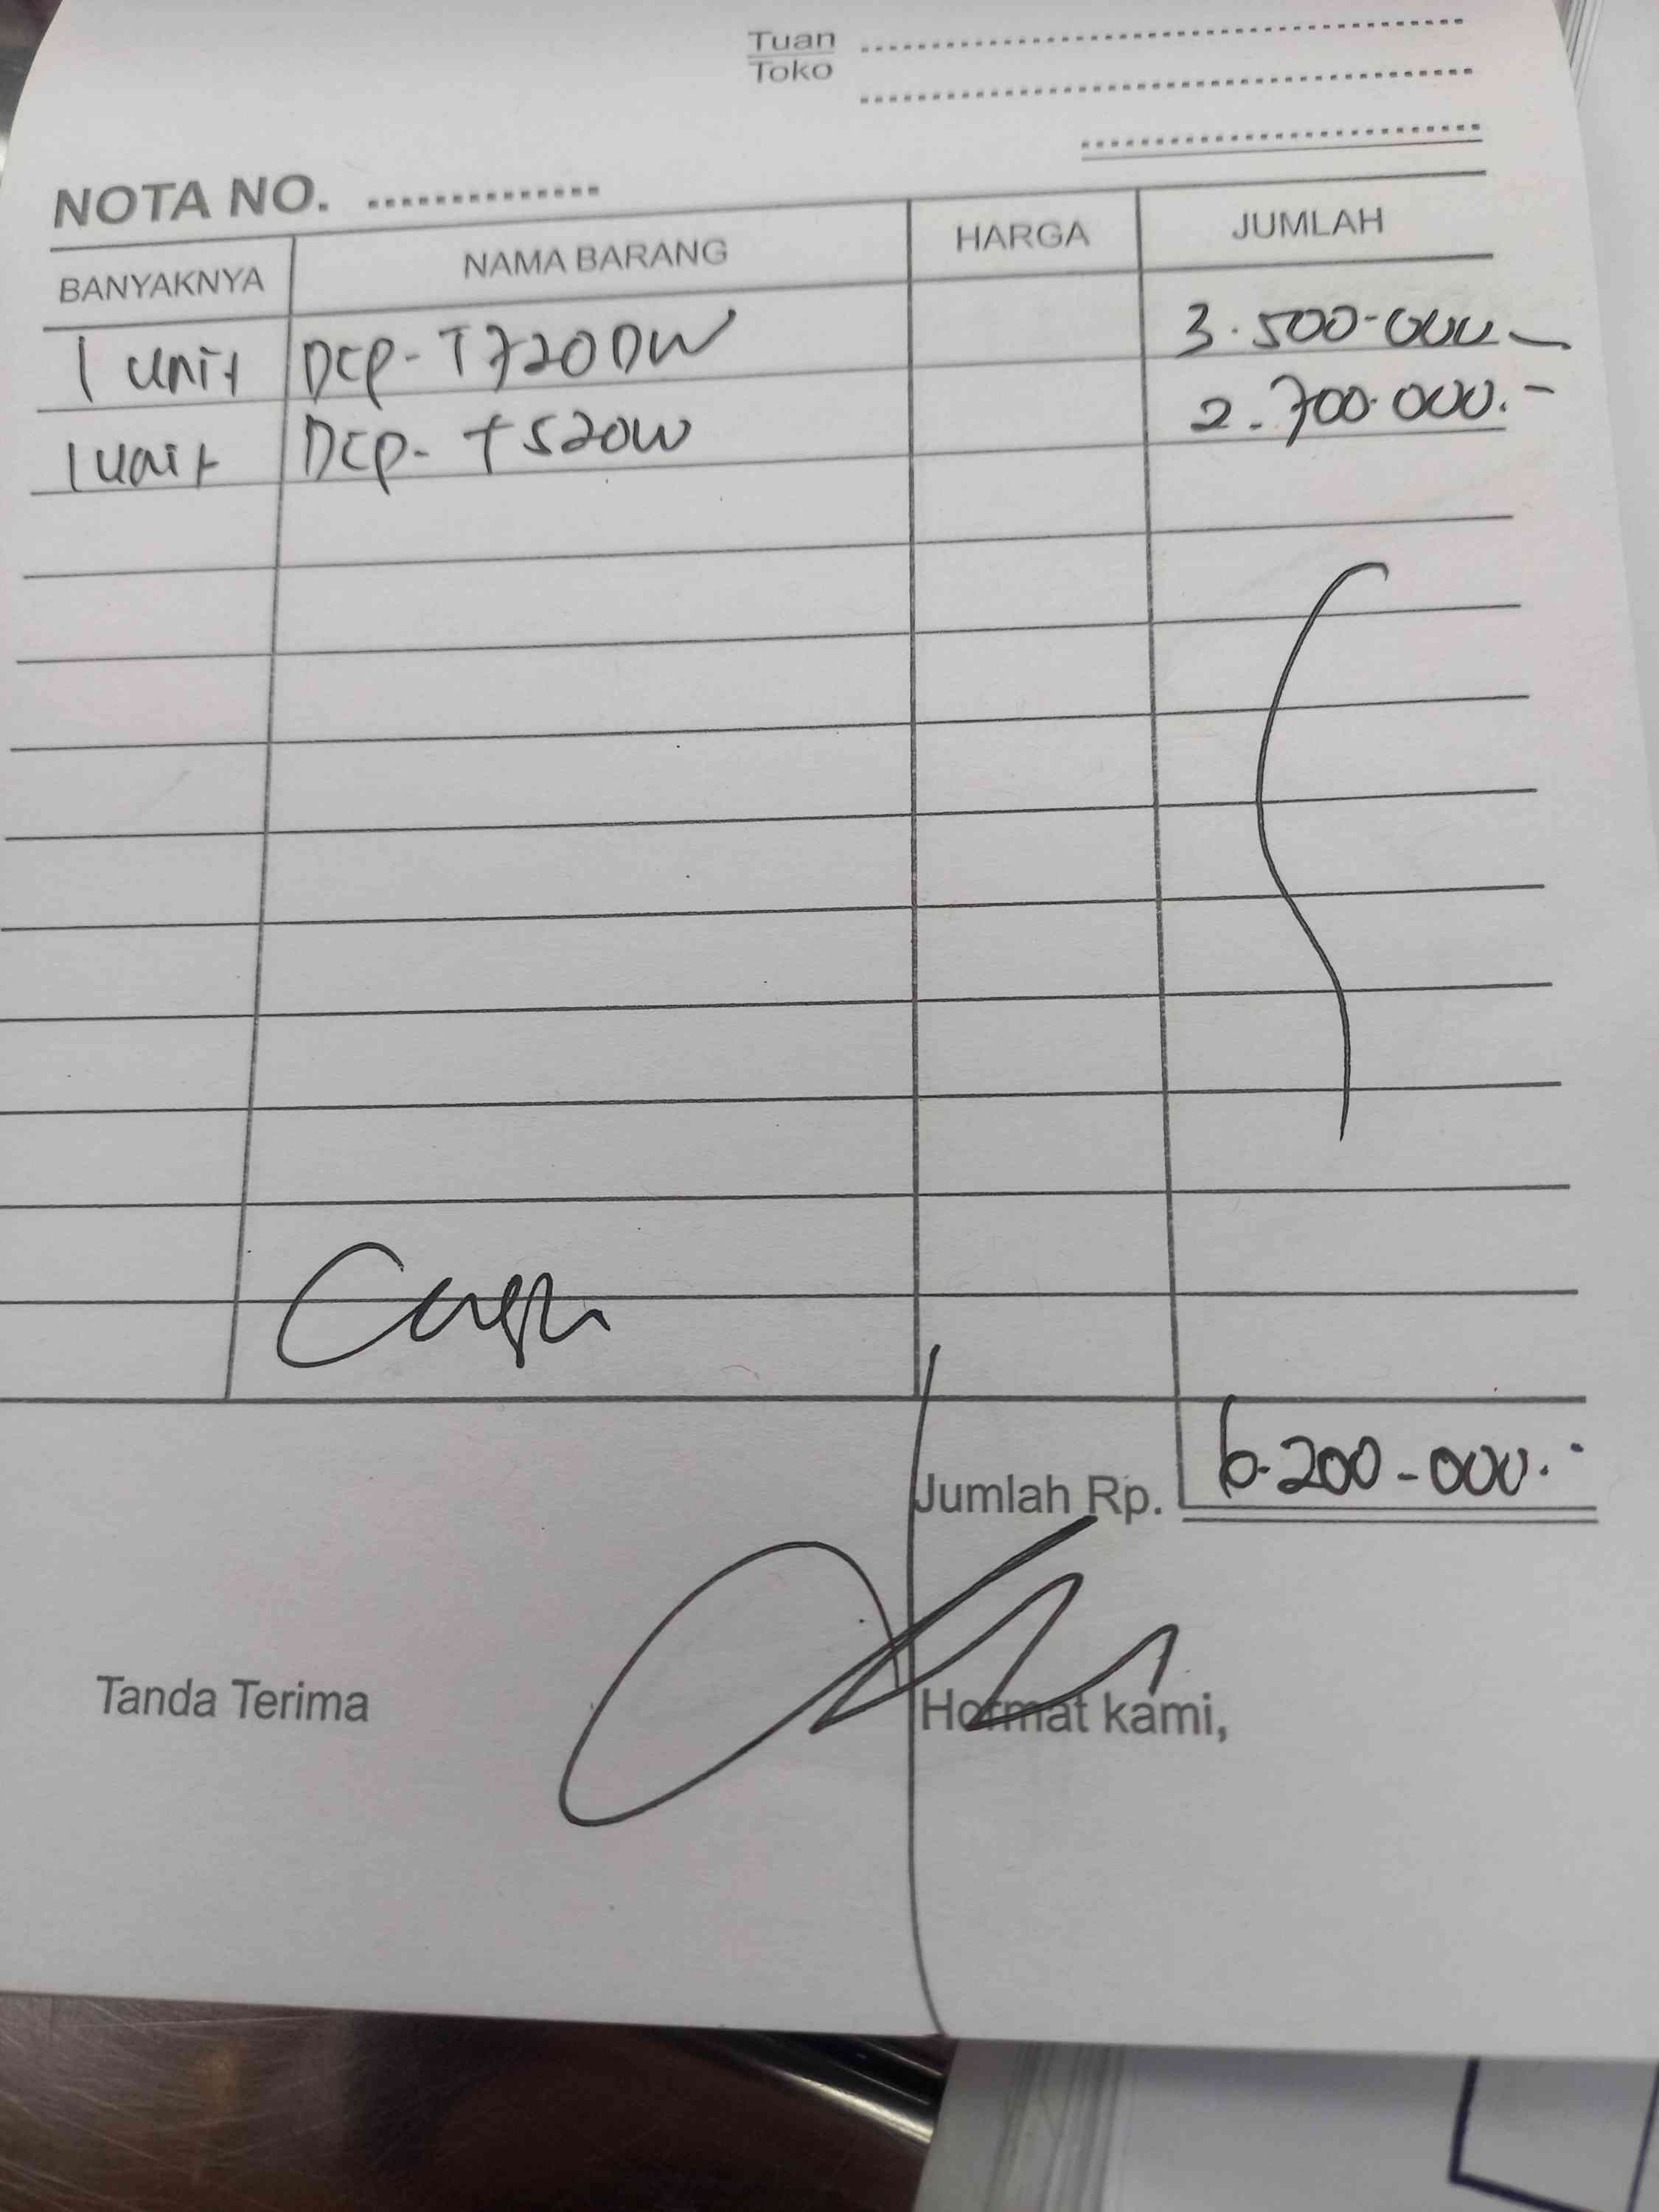 Tuan
Toko
NOTA NO.
BANYAKNYA NAMA BARANG HARGA JUMLAH
1 unit DCP-T720DW 3.500-000
1 unit DCP-T520W 2-700.000.-
Cash
Jumlah Rp. 6.200-000.-
Tanda Terima Hormat kami,